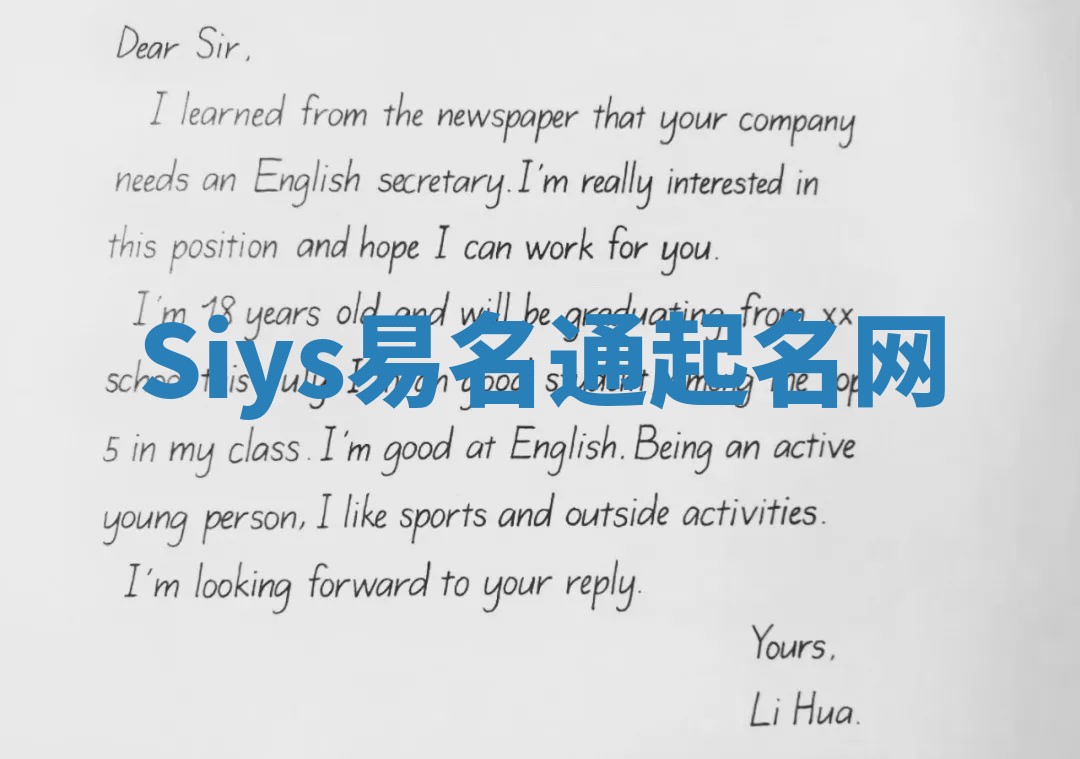 Dear Sir,
I learned from the newspaper that your company
needs an English secretary. I'm really interested in
this position and hope I can work for you.
I'm 18 years old and will be graduating from xx
Siys易名通起名网
school this July. I'm good student among the top
5 in my class. I'm good at English. Being an active
young person, I like sports and outside activities.
I'm looking forward to your reply.
Yours,
Li Hua.